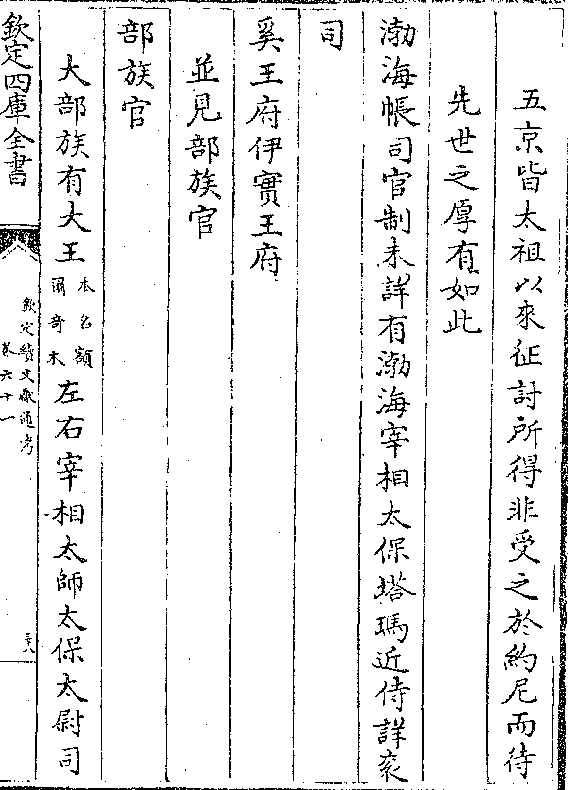 五京皆太祖以來征討所得非受之於約尼而待
先世之厚有如此
渤海帳司官制未詳有渤海宰相太保塔瑪近侍詳衮
司
奚王府伊實王府
並見部族官
部族官
大部族有大王本名額爾奇木左右宰相太師太保太尉司
欽定四庫全書
欽定續文獻通考
卷六十一